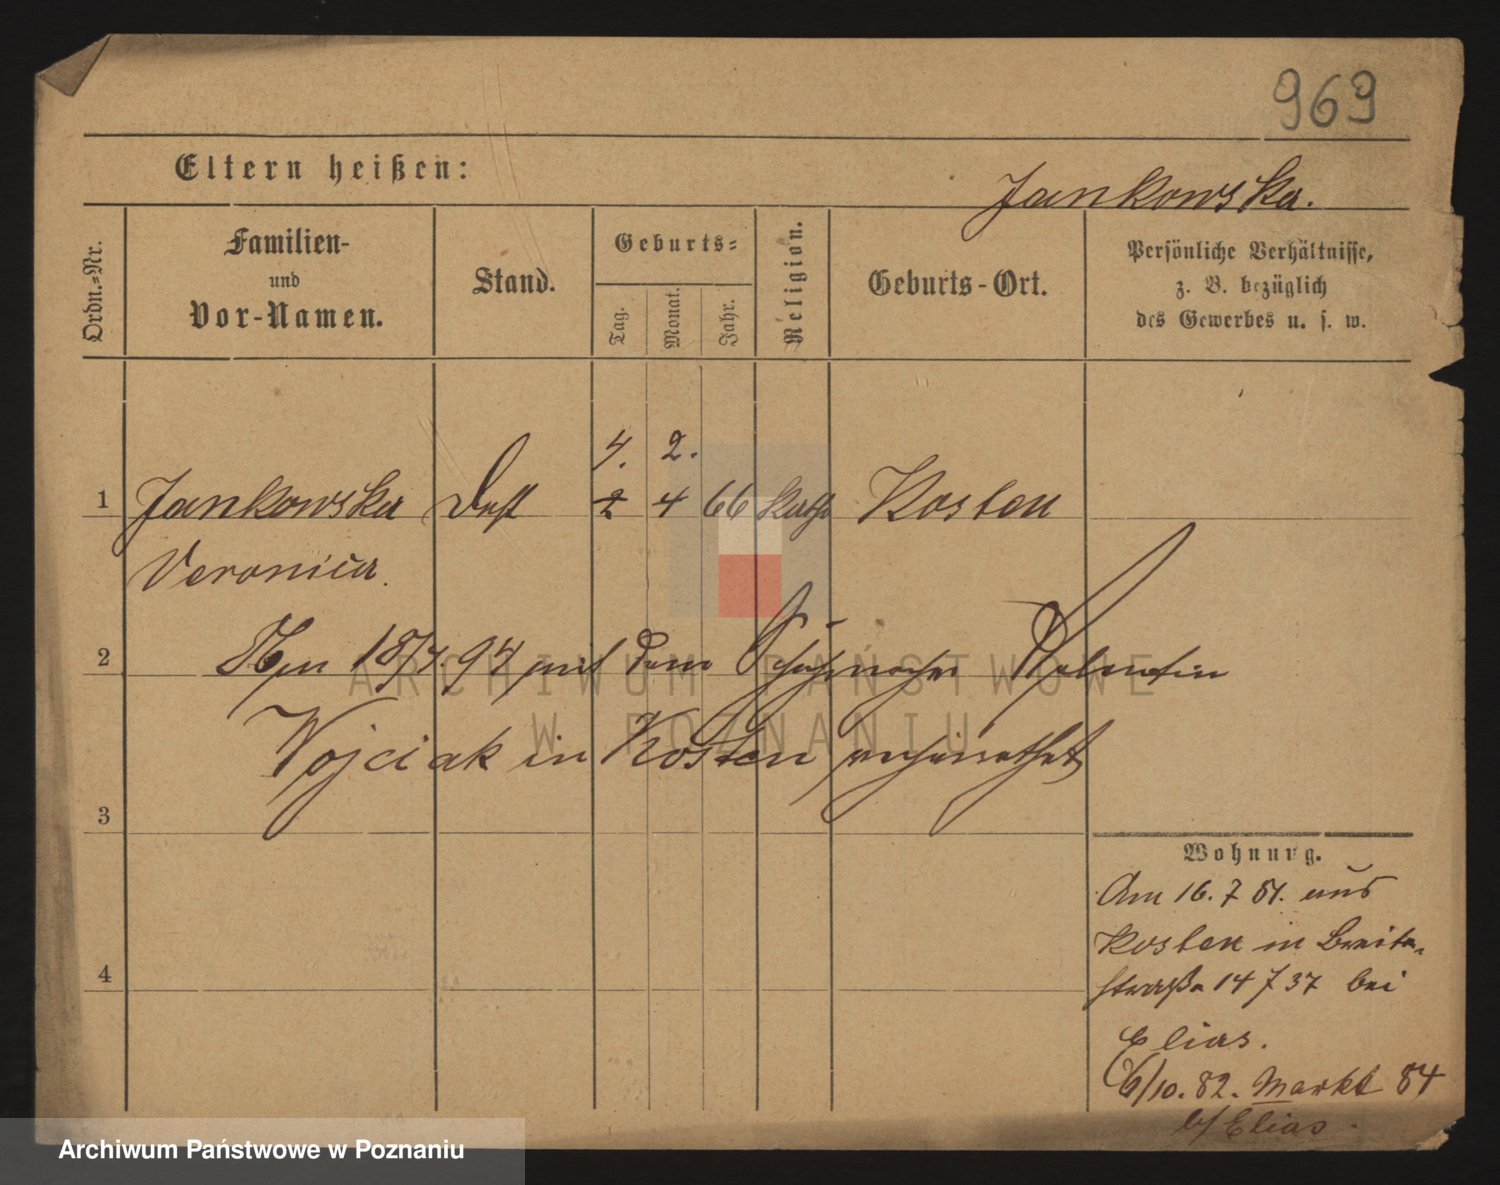 969
Eltern heißen:
Jankowska.
Ordn.-Nr.
Familien-
und
Vor-Namen.
Stand.
Geburts-
Tag.
Monat.
Jahr.
Religion.
Geburts-Ort.
Persönliche Verhältnisse,
z. B. bezüglich
des Gewerbes u. s. w.
4. 2.
1 Jankowska 2 4 66 kath Kosten
Veronica.
2 18/4. 94 mit dem Schuhmacher Valentin
Wojciak in Kosten verheirathet
3
4
Wohnung.
Am 16. 7 81. aus
Kosten in Breite-
straße 14 / 37 bei
Elias.
6/10. 82. Markt 84
b/ Elias.
ARCHIWUM PAŃSTWOWE
W POZNANIU
Archiwum Państwowe w Poznaniu